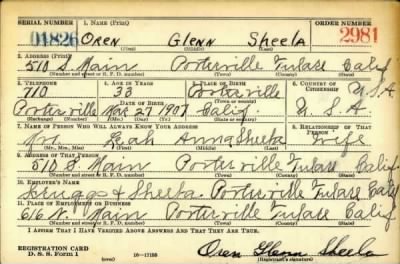 SERIAL NUMBER 1. NAME (Print) ORDER NUMBER
01826 OREN GLENN Sheela 2981
(First) (Middle) (Last)
2. ADDRESS (Print)
510 S. Main Porterville Tulare Calif
(Number and street or R. F. D. number) (Town) (County) (State)
3. TELEPHONE 4. AGE IN YEARS 5. PLACE OF BIRTH 6. COUNTRY OF CITIZENSHIP
710 33 Porterville U.S.A
DATE OF BIRTH (Town or county)
Porterville Mar 27 1907 Calif U.S.A
(Exchange) (Number) (Mo.) (Day) (Yr.) (State or country)
7. NAME OF PERSON WHO WILL ALWAYS KNOW YOUR ADDRESS 8. RELATIONSHIP OF THAT PERSON
Leah Sheela Wife
(Mr., Mrs., Miss) (First) (Middle) (Last)
9. ADDRESS OF THAT PERSON
510 S Main Porterville Tulare Calif
(Number and street or R. F. D. number) (Town) (County) (State)
10. EMPLOYER'S NAME
& Sheela Porterville Tulare Calif
11. PLACE OF EMPLOYMENT OR BUSINESS
616 N. Main Porterville Tulare Calif
(Number and street or R. F. D. number) (Town) (County) (State)
I AFFIRM THAT I HAVE VERIFIED ABOVE ANSWERS AND THAT THEY ARE TRUE.
REGISTRATION CARD
D. S. S. Form 1 16—17105 Oren Glenn Sheela
(Registrant's signature)